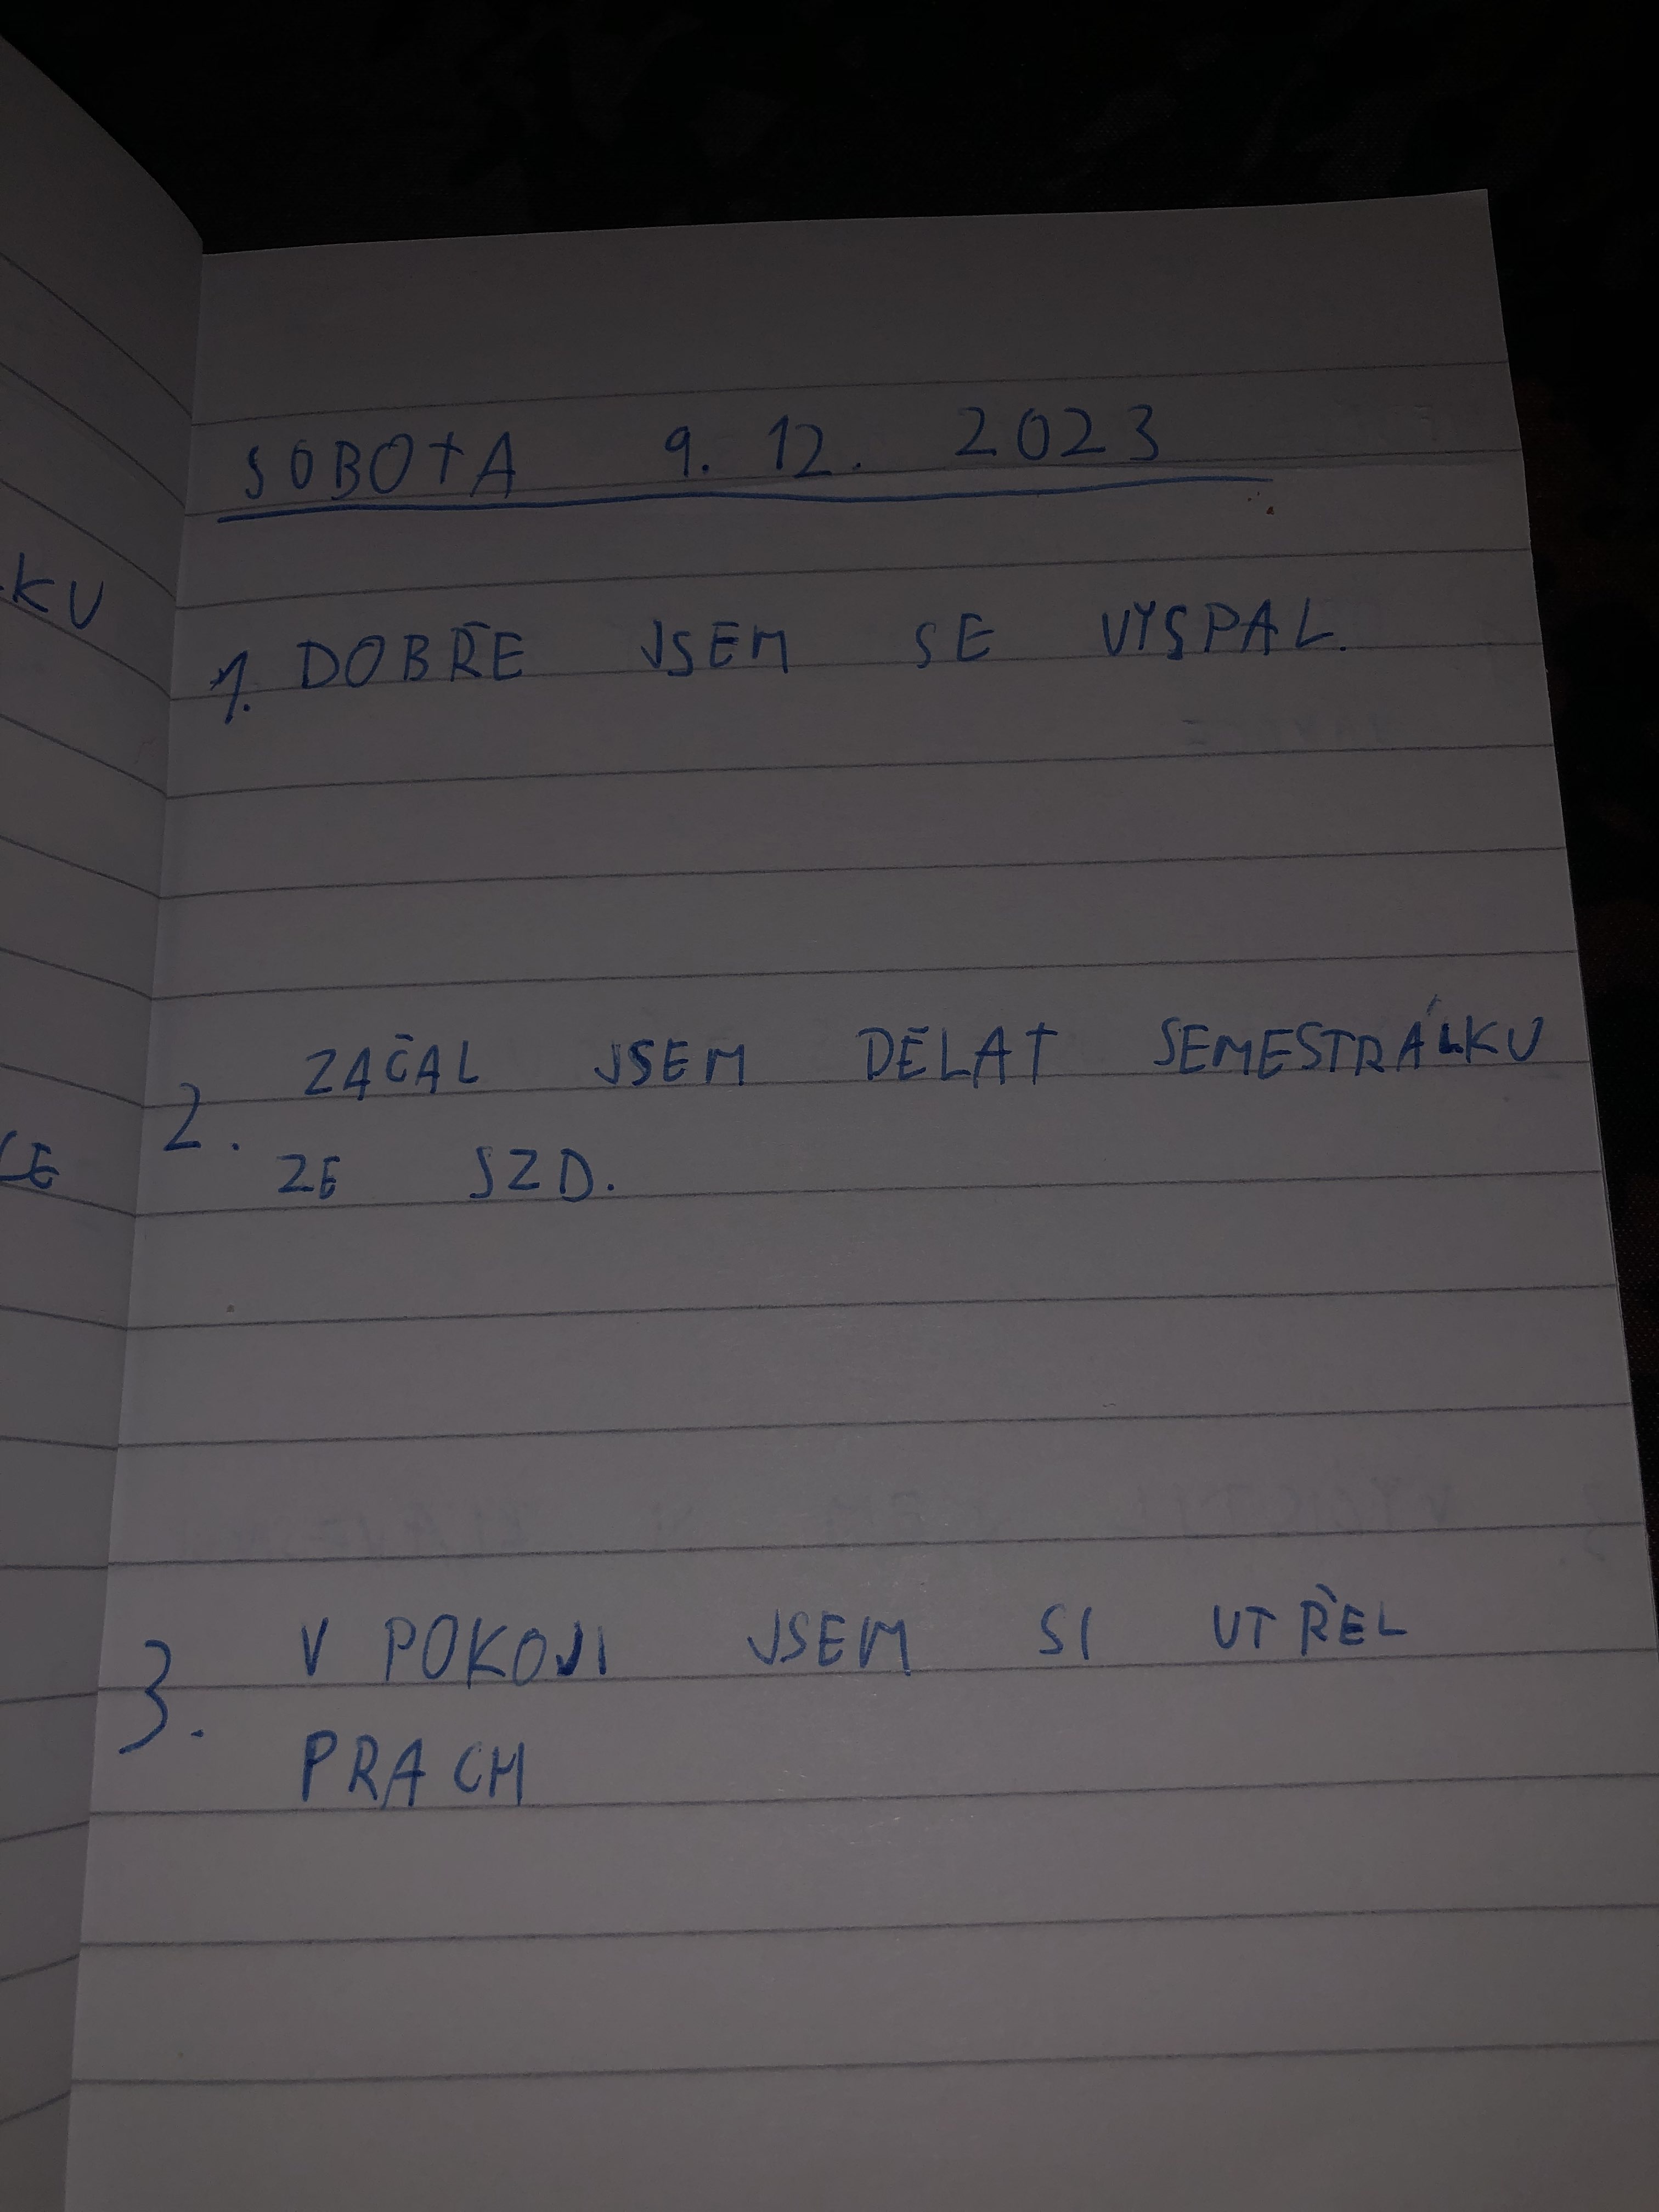 SOBOTA 9. 12. 2023
KU
1. DOBŘE JSEM SE VYSPAL.
ZAČAL JSEM DĚLAT SEMESTRÁLKU
2. ZE SZD.
3. V POKOJI JSEM SI UTŘEL
PRACH